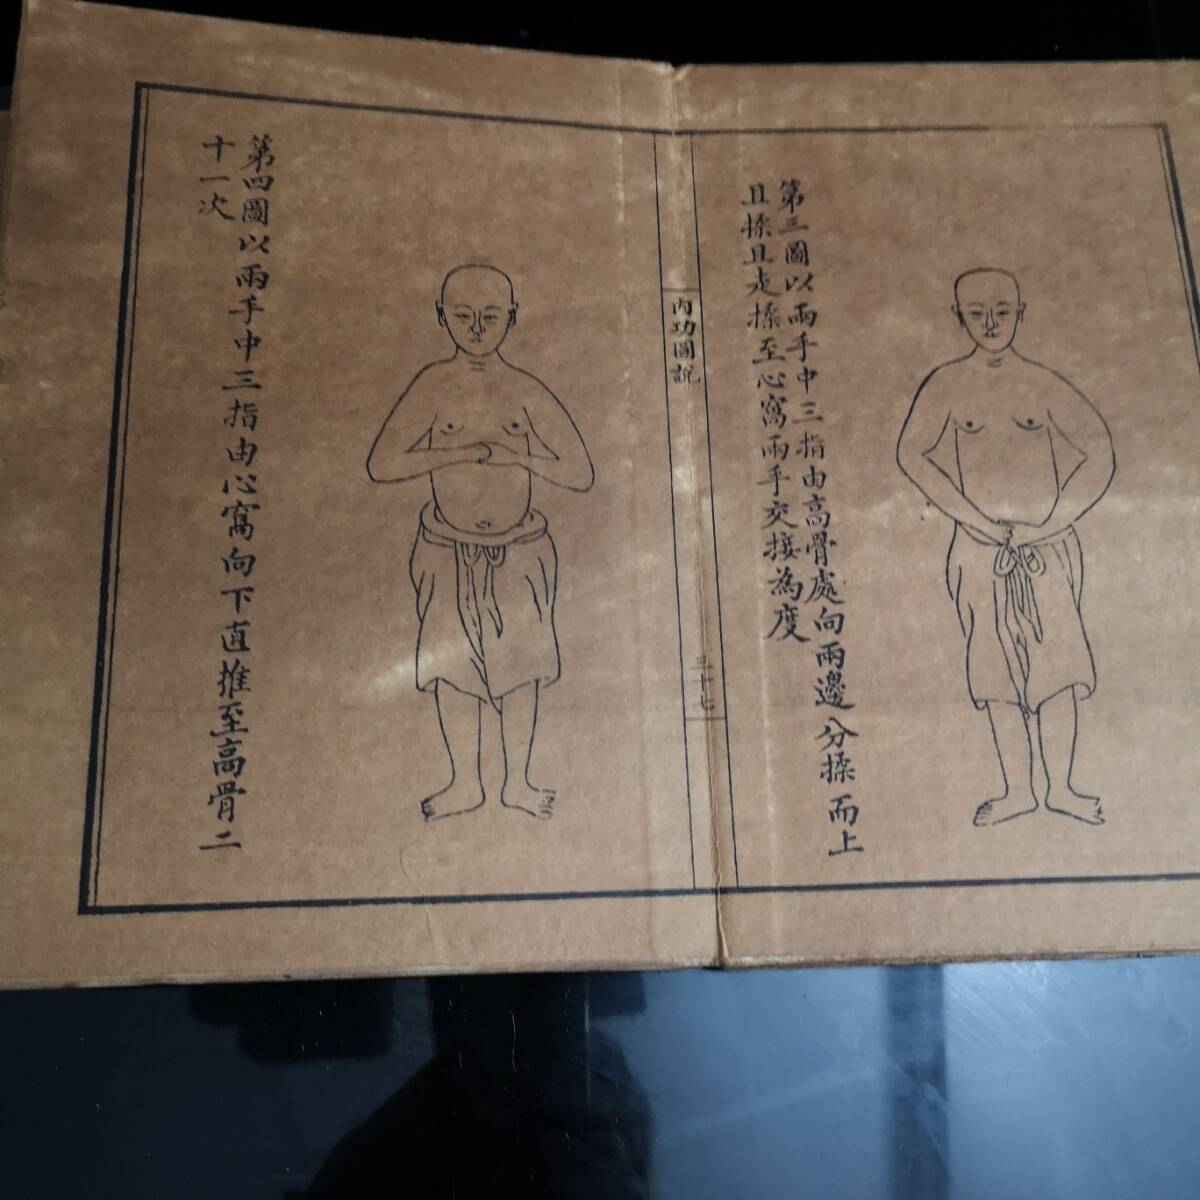 第三圖以兩手中三指由高骨處向兩邊分揉而上
且揉且走揉至心窩兩手交接為度
內功圖說
三十七
第四圖以兩手中三指由心窩向下直推至高骨二
十一次